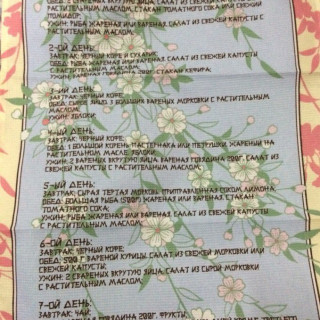 РАСТИТЕЛЬНЫМ МАСЛОМ, СТАКАН ТОМАТНОГО СОКА ИЛИ СВЕЖИЙ
ПОМИДОР.
УЖИН: РЫБА ЖАРЕНАЯ ИЛИ ВАРЕНАЯ, САЛАТ ИЗ СВЕЖЕЙ КАПУСТЫ С
РАСТИТЕЛЬНЫМ МАСЛОМ.
2-ОЙ ДЕНЬ:
ЗАВТРАК: ЧЕРНЫЙ КОФЕ И СУХАРИК.
ОБЕД: РЫБА ЖАРЕНАЯ ИЛИ ВАРЕНАЯ, САЛАТ ИЗ СВЕЖЕЙ КАПУСТЫ
С РАСТИТЕЛЬНЫМ МАСЛОМ.
УЖИН: ВАРЕНАЯ ГОВЯДИНА 200Г, СТАКАН КЕФИРА.
3-ИЙ ДЕНЬ:
ЗАВТРАК: ЧЕРНЫЙ КОФЕ.
ОБЕД: СЫРОЕ ЯЙЦО, 3 БОЛЬШИХ ВАРЕНЫХ МОРКОВКИ С РАСТИТЕЛЬНЫМ
МАСЛОМ.
УЖИН: ЯБЛОКИ.
4-ЫЙ ДЕНЬ:
ЗАВТРАК: ЧЕРНЫЙ КОФЕ.
ОБЕД: 1 БОЛЬШОЙ КОРЕНЬ ПАСТЕРНАКА ИЛИ ПЕТРУШКИ, ЖАРЕНЫЙ НА
РАСТИТЕЛЬНОМ МАСЛЕ, ЯБЛОКИ.
УЖИН: 2 ВАРЕНЫХ ВКРУТУЮ ЯЙЦА, ВАРЕНАЯ ГОВЯДИНА 200Г, САЛАТ ИЗ
СВЕЖЕЙ КАПУСТЫ С РАСТИТЕЛЬНЫМ МАСЛОМ.
5-ЫЙ ДЕНЬ:
ЗАВТРАК: СЫРАЯ ТЕРТАЯ МОРКОВЬ, ПРИПРАВЛЕННАЯ СОКОМ ЛИМОНА.
ОБЕД: БОЛЬШАЯ РЫБА (500Г) ЖАРЕНАЯ ИЛИ ВАРЕНАЯ, СТАКАН
ТОМАТНОГО СОКА.
УЖИН: РЫБА ЖАРЕНАЯ ИЛИ ВАРЕНАЯ, САЛАТ ИЗ СВЕЖЕЙ КАПУСТЫ
С РАСТИТЕЛЬНЫМ МАСЛОМ.
6-ОЙ ДЕНЬ:
ЗАВТРАК: ЧЕРНЫЙ КОФЕ.
ОБЕД: 500 Г ВАРЕНОЙ КУРИЦЫ, САЛАТ ИЗ СВЕЖЕЙ МОРКОВКИ ИЛИ
СВЕЖЕЙ КАПУСТЫ.
УЖИН: 2 СВАРЕННЫХ ВКРУТУЮ ЯЙЦА, САЛАТ ИЗ СЫРОЙ МОРКОВКИ
С РАСТИТЕЛЬНЫМ МАСЛОМ.
7-ОЙ ДЕНЬ:
ЗАВТРАК: ЧАЙ.
ГОВЯДИНА 200Г, ФРУКТЫ.